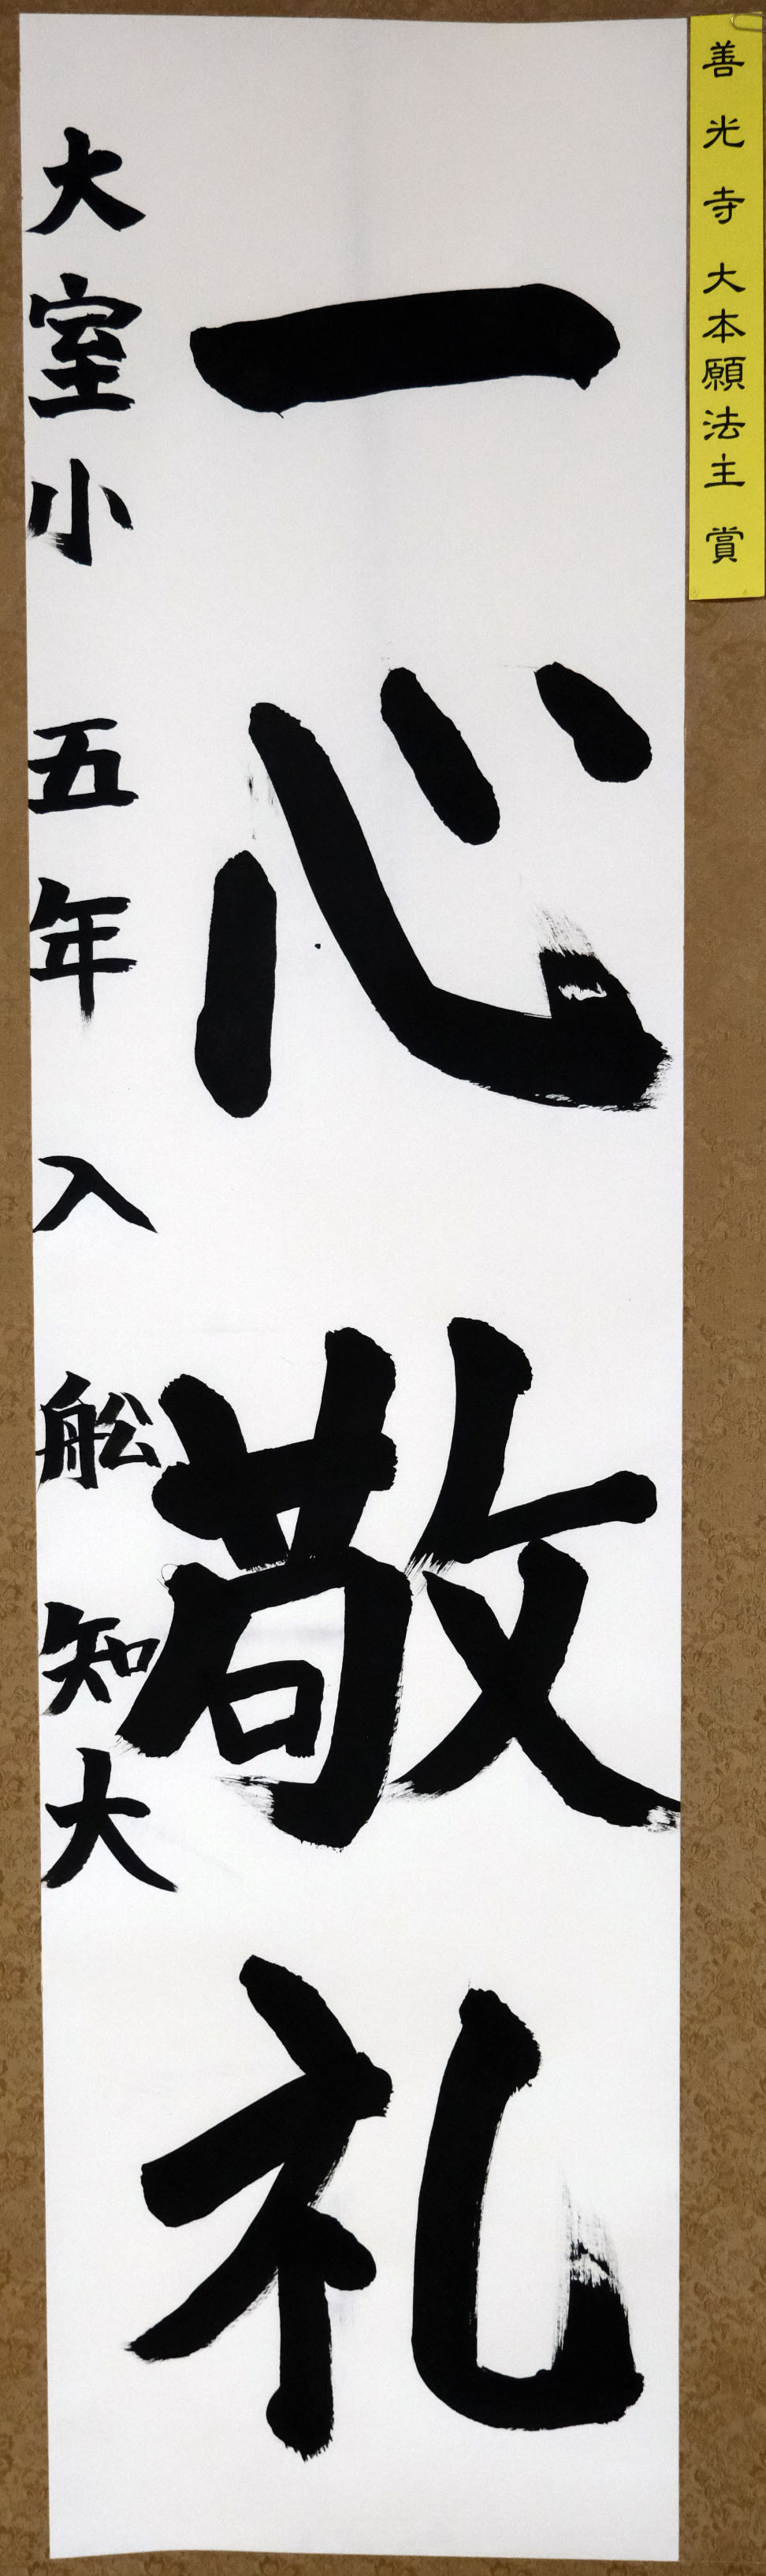 善光寺 大本願法主 賞
一心敬礼
大室小 五年 入舩知大